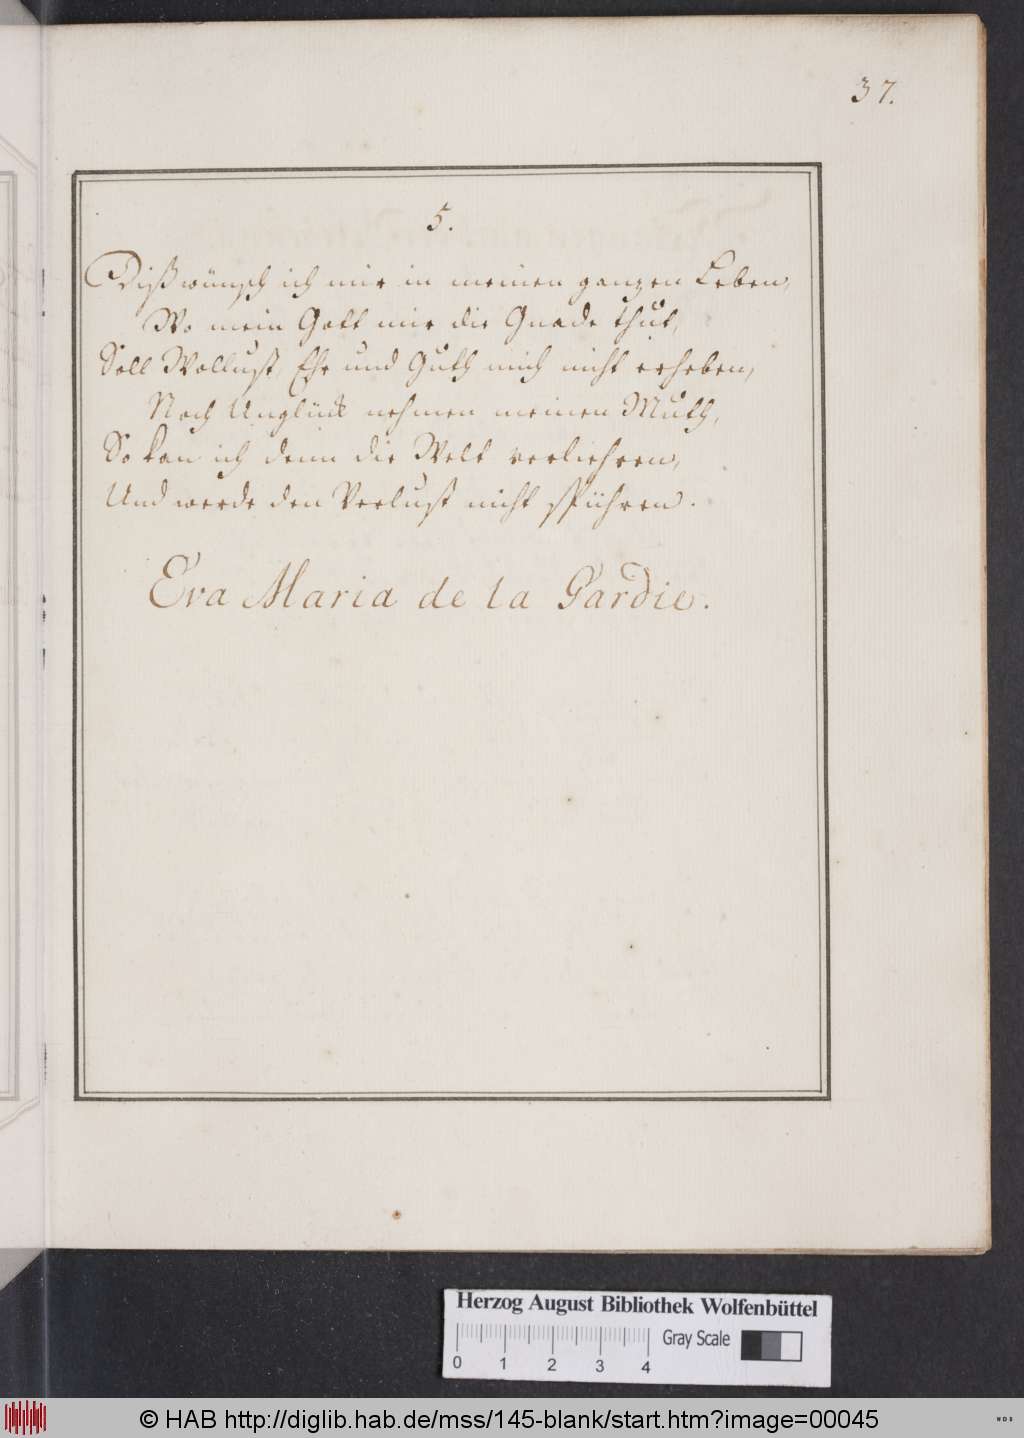 37.
5.
Diß wünsch ich mir in meinen ganzen Leben,
Wo mein Gott mir die Gnade thut,
Soll Wollust, Ehr und Guth mich nicht erheben,
Noch Unglück nehmen meinen Muth,
So kan ich denn die Welt verliehren,
Und werde den Verlust nicht spühren.
Eva Maria de la Gardie.
Herzog August Bibliothek Wolfenbüttel
Gray Scale
0 1 2 3 4
© HAB http://diglib.hab.de/mss/145-blank/start.htm?image=00045